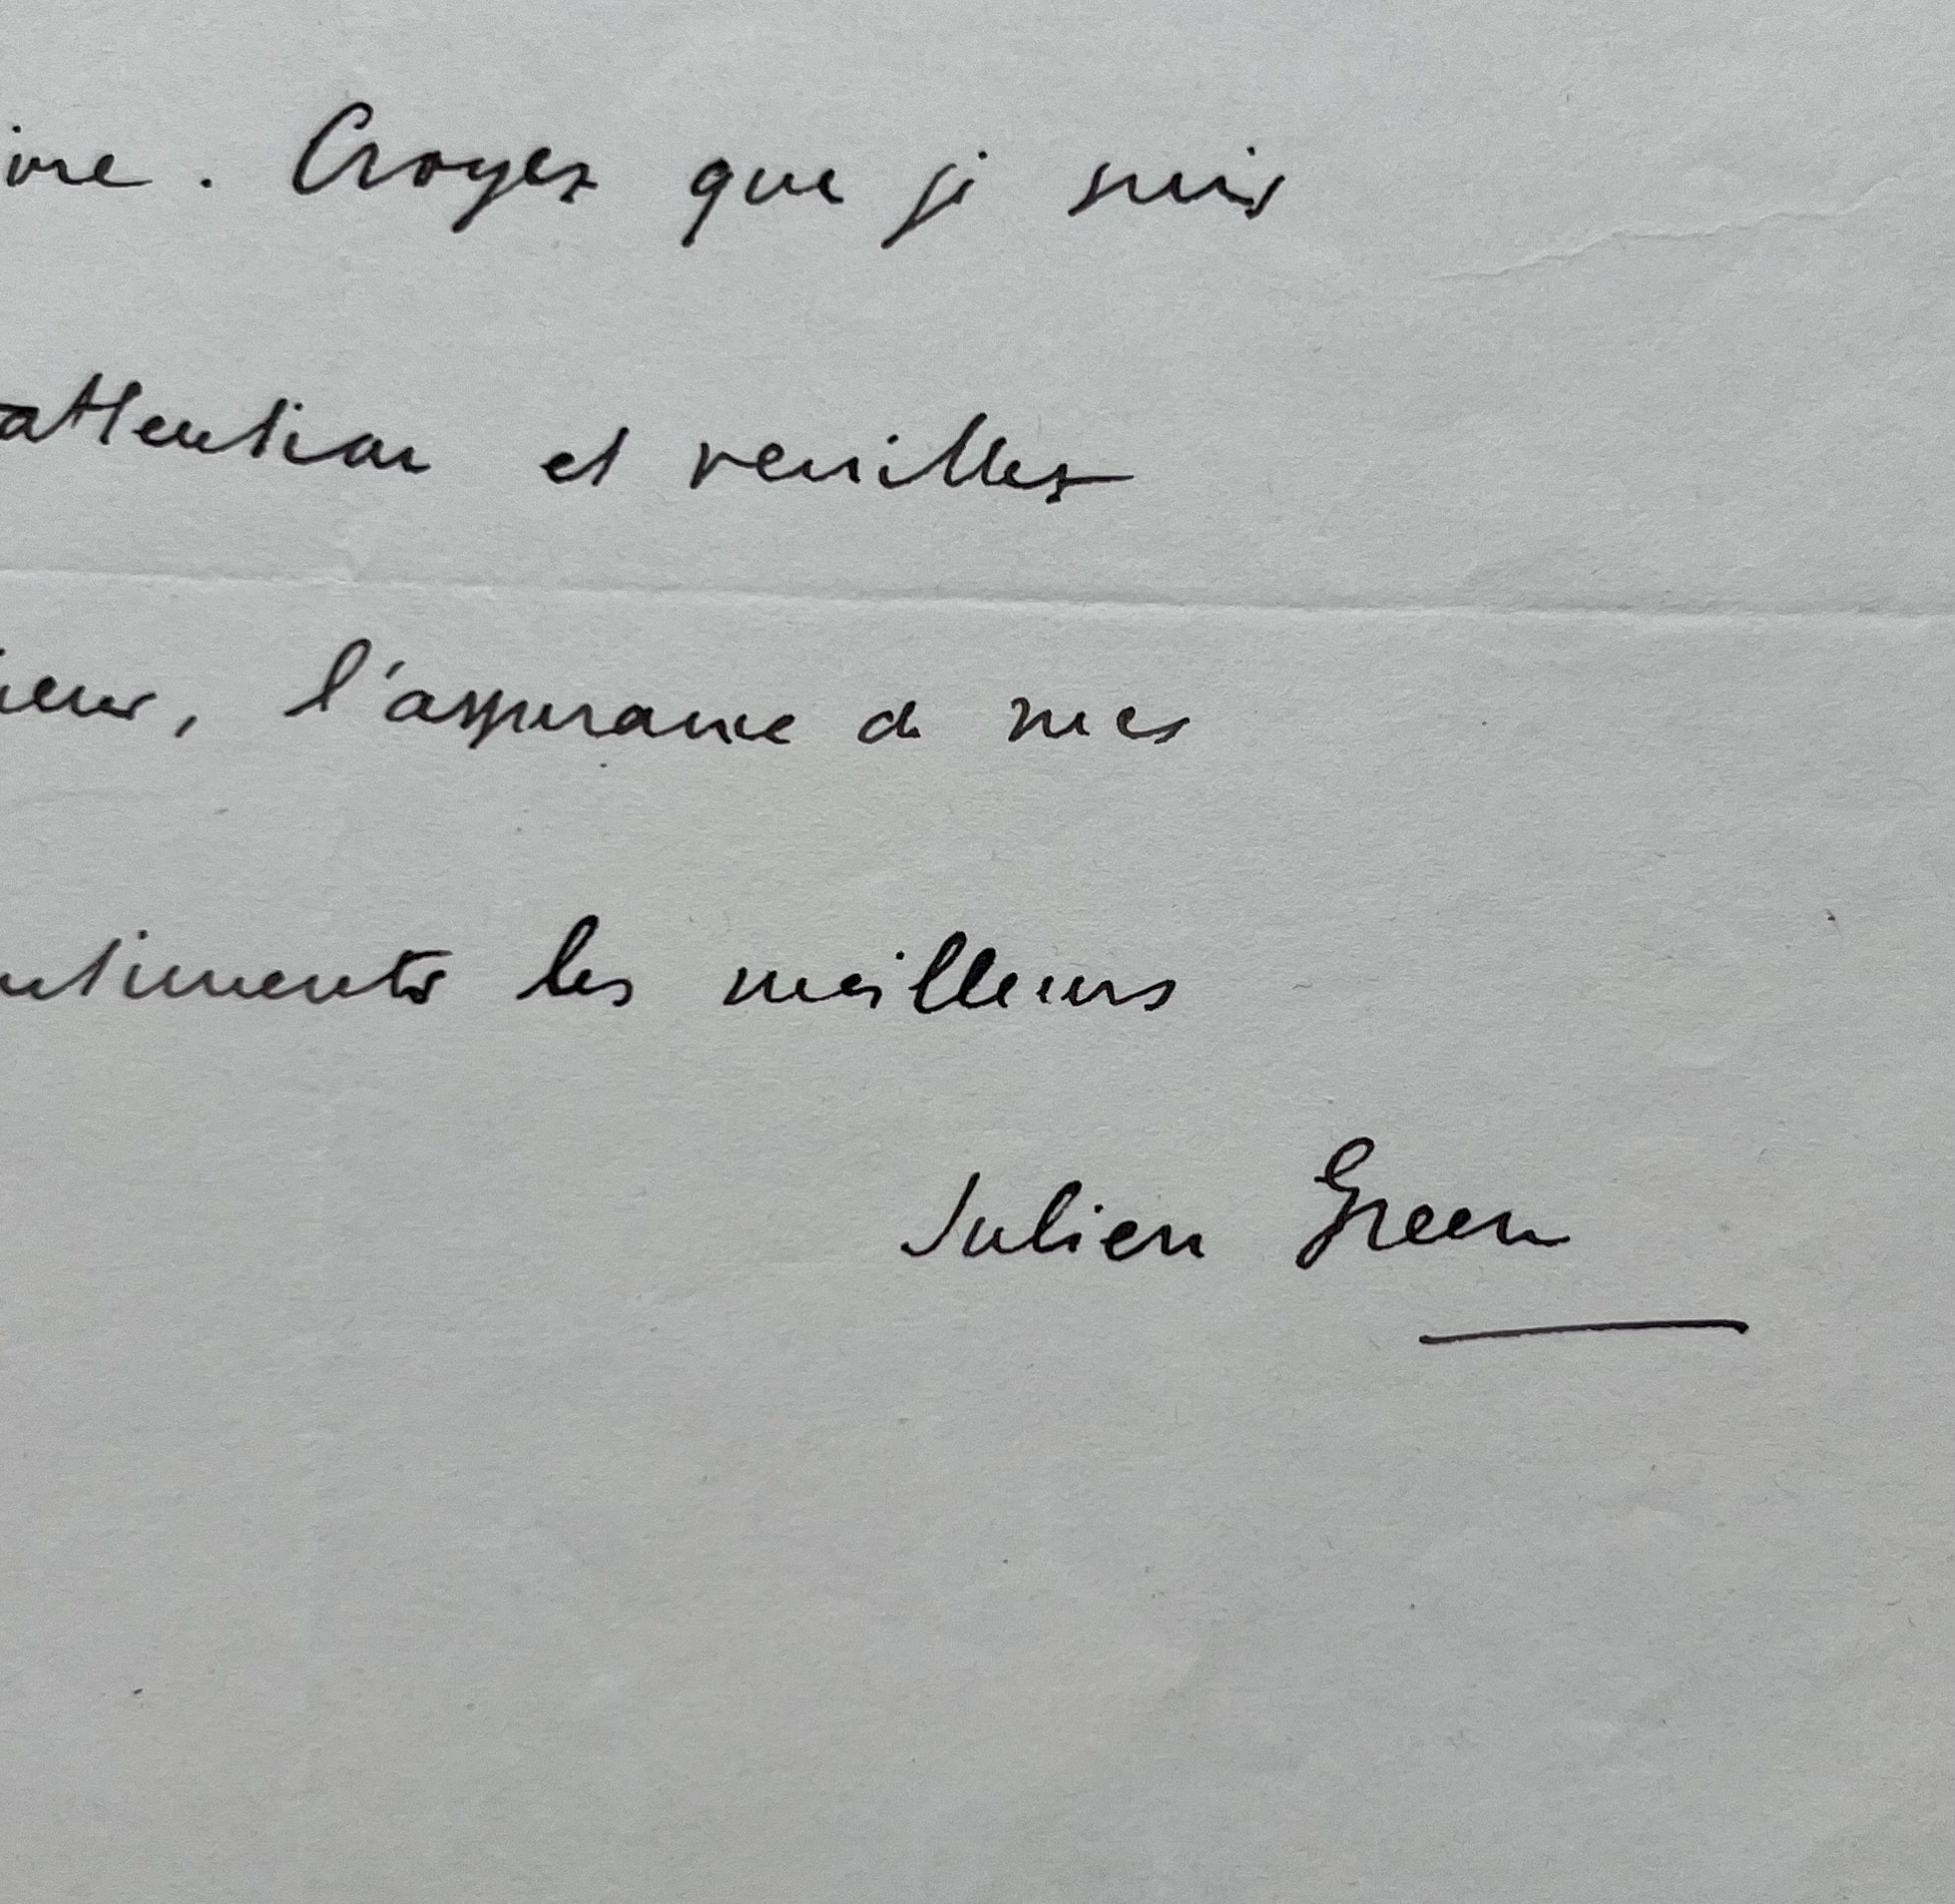 ire. Croyez que je suis
attention et veuillez
ieur, l'assurance de mes
ntiments les meilleurs
Julien Green